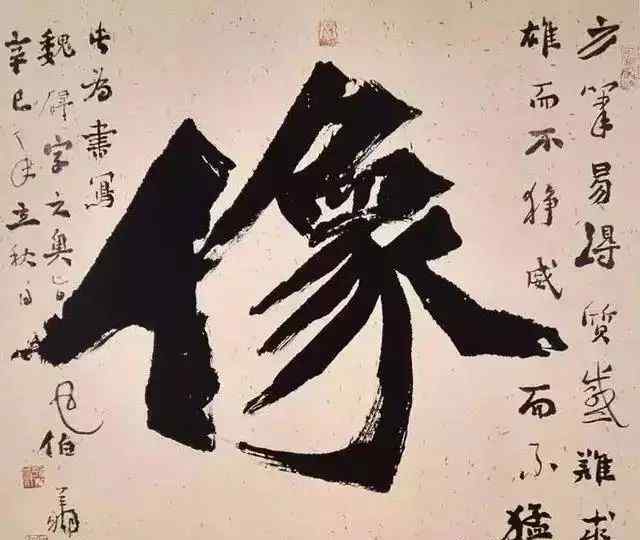 方筆易得質感難求
雄而不猙威而不猛
像
此為書寫
魏碑字之奧旨
辛巳之年立秋
伯